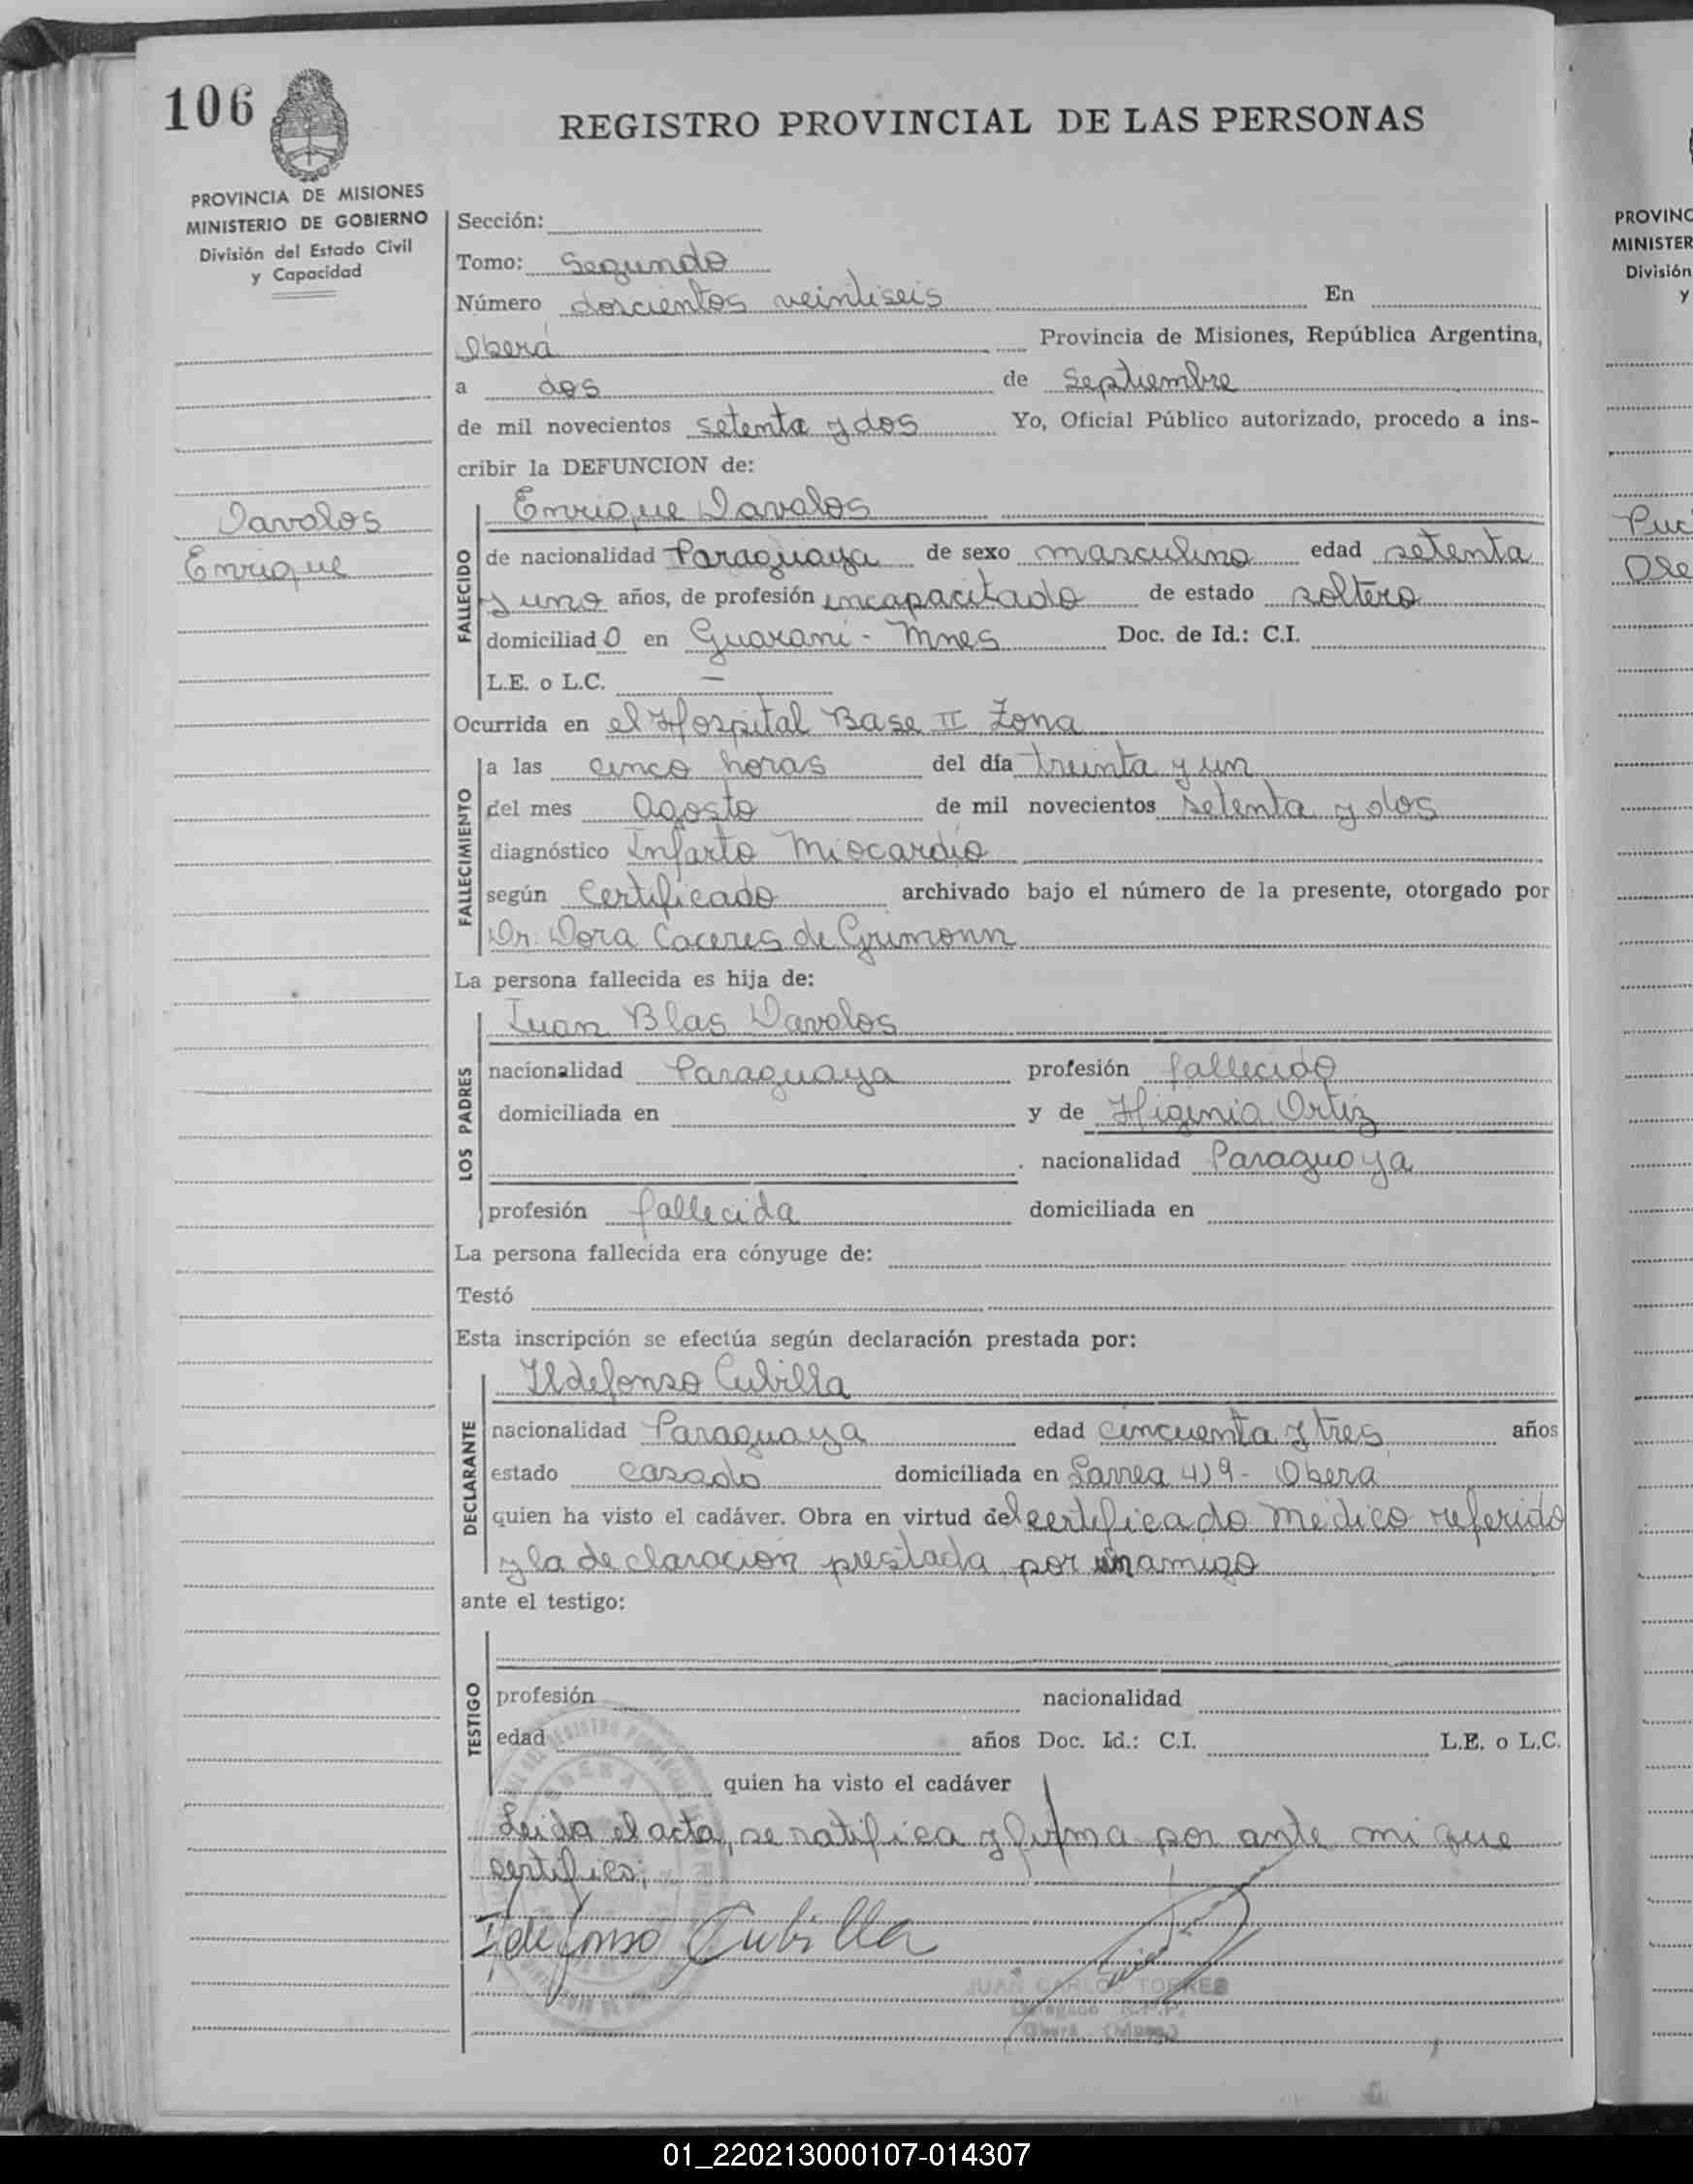 106
REGISTRO PROVINCIAL DE LAS PERSONAS
PROVINCIA DE MISIONES
MINISTERIO DE GOBIERNO
División del Estado Civil
y Capacidad
Davalos
Enrique
Sección:
Tomo: Segundo
Número doscientos veintiseis En
Oberá Provincia de Misiones, República Argentina,
a dos de Septiembre
de mil novecientos setenta y dos Yo, Oficial Público autorizado, procedo a ins-
cribir la DEFUNCION de:
FALLECIDO
Enrique Davalos
de nacionalidad Paraguaya de sexo masculino edad setenta
y uno años, de profesión incapacitado de estado soltero
domiciliado en Guarani - Mnes Doc. de Id.: C.I.
L.E. o L.C. —
Ocurrida en el Hospital Base II Zona
FALLECIMIENTO
a las cinco horas del día treinta y un
del mes Agosto de mil novecientos setenta y dos
diagnóstico Infarto Miocardio
según Certificado archivado bajo el número de la presente, otorgado por
Dr. Dora Caceres de Grimonn
La persona fallecida es hija de:
LOS PADRES
Juan Blas Davalos
nacionalidad Paraguaya profesión fallecido
domiciliada en y de Higinia Ortiz
. nacionalidad Paraguaya
profesión fallecida domiciliada en
La persona fallecida era cónyuge de:
Testó
Esta inscripción se efectúa según declaración prestada por:
DECLARANTE
Ildefonso Cubilla
nacionalidad Paraguaya edad cincuenta y tres años
estado casado domiciliada en Larrea 419 - Obera
quien ha visto el cadáver. Obra en virtud del certificado medico referido
y la declaracion prestada por un amigo
ante el testigo:
TESTIGO
profesión nacionalidad
edad años Doc. Id.: C.I. L.E. o L.C.
quien ha visto el cadáver
Leida el acta, se ratifica y firma por ante mi que
certifico;
Ildefonso Cubilla
JUAN CARLOS TORRES
Delegado R.P.P.
Oberá (Mnes.)
PROVINC
MINISTER
División
y
Puc
Ole
01_220213000107-014307